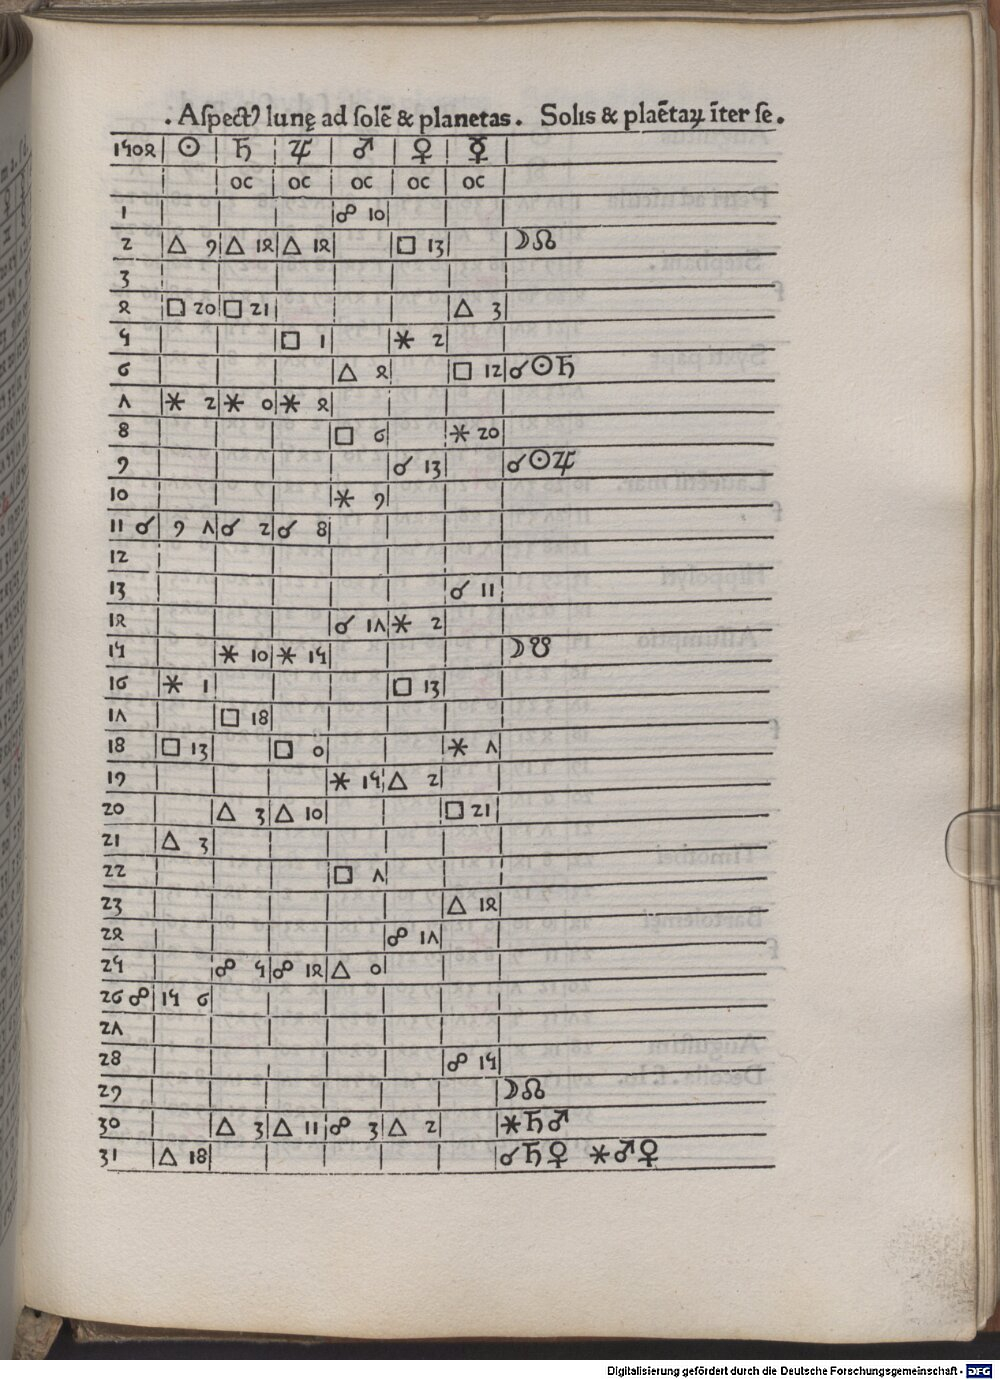 . Aſpectꝰ lunę ad ſolē & planetas . Solis & plaētaꝝ īter ſe .
1504 ☉ ♄ ♃ ♂ ♀ ☿
oc oc oc oc oc
1 ☍ 10
2 △ 9 △ 14 △ 14 □ 13 ☽☊
3
4 □ 20 □ 21 △ 3
5 □ 1 ⚹ 2
6 △ 4 □ 12 ☌☉♄
7 ⚹ 2 ⚹ 0 ⚹ 4
8 □ 6 ⚹ 20
9 ☌ 13 ☌☉♃
10 ⚹ 9
11 ☌ 9 7 ☌ 2 ☌ 8
12
13 ☌ 11
14 ☌ 17 ⚹ 2
15 ⚹ 10 ⚹ 15 ☽☋
16 ⚹ 1 □ 13
17 □ 18
18 □ 13 □ 0 ⚹ 7
19 ⚹ 15 △ 2
20 △ 3 △ 10 □ 21
21 △ 3
22 □ 7
23 △ 14
24 ☍ 17
25 ☍ 5 ☍ 14 △ 0
26 ☍ 15 6
27
28 ☍ 15
29 ☽☊
30 △ 3 △ 11 ☍ 3 △ 2 ⚹♄♂
31 △ 18 ☌♄♀ ⚹♂♀
Digitalisierung gefördert durch die Deutsche Forschungsgemeinschaft - DFG